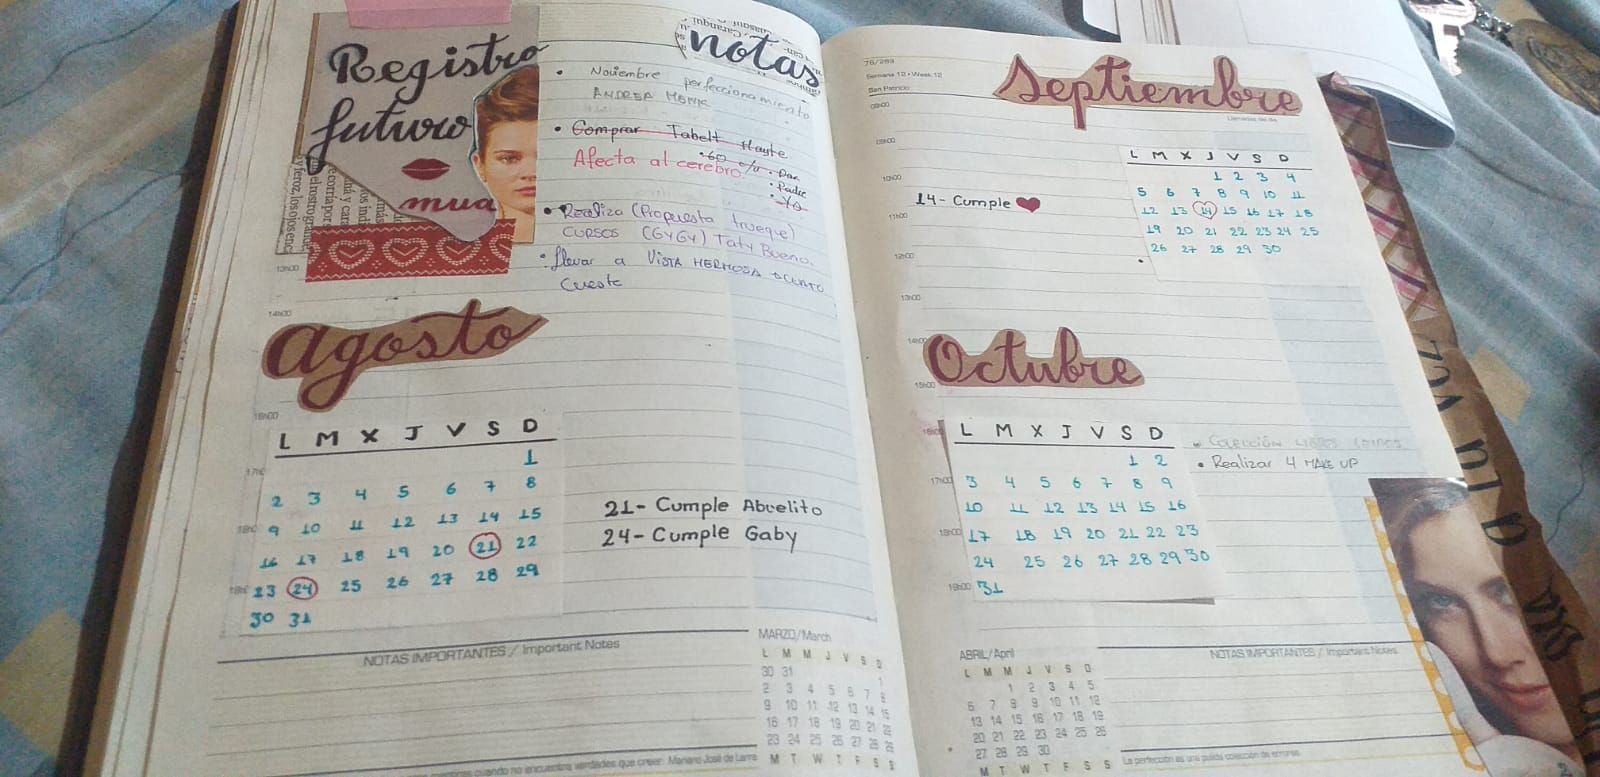 Registro
futuro
mua
notas
• Noviembre perfeccionamiento
ANDREA
• Comprar Tabelt Hayte
•60 c/u • Dan
Afecta al cerebro
• Padre
• Yo
• Realiza (Propuesta trueque)
CURSOS (GYGY) Taty Bueno.
• llevar a VISTA HERMOSA
Cuesta
13h00
14h00
agosto
16h00
L M X J V S D
1
2 3 4 5 6 7 8
9 10 11 12 13 14 15
16 17 18 19 20 21 22
23 24 25 26 27 28 29
30 31
21- Cumple Abuelito
24- Cumple Gaby
NOTAS IMPORTANTES / Important Notes
MARZO/March
L M M J V S D
30 31 1
2 3 4 5 6 7 8
9 10 11 12 13 14 15
16 17 18 19 20 21 22
23 24 25 26 27 28 29
M T W T F S S
cuando no encuentra verdades que creer. Mariano José de Larra
76/289
Semana 12 • Week 12
San Patricio
Septiembre
Llamadas del día
08h00
09h00
10h00
11h00
12h00
13h00
L M X J V S D
1 2 3 4
5 6 7 8 9 10 11
12 13 14 15 16 17 18
19 20 21 22 23 24 25
26 27 28 29 30
14- Cumple ♥
14h00
Octubre
15h00
16h00
17h00
18h00
19h00
L M X J V S D
1 2
3 4 5 6 7 8 9
10 11 12 13 14 15 16
17 18 19 20 21 22 23
24 25 26 27 28 29 30
31
• COLECCIÓN LIBROS
• Realizar 4 MAKE UP
ABRIL/April
L M M J V S D
1 2 3 4 5
6 7 8 9 10 11 12
13 14 15 16 17 18 19
20 21 22 23 24 25 26
27 28 29 30
M T W T F S S
NOTAS IMPORTANTES / Important Notes
La perfección es una pulida colección de errores.